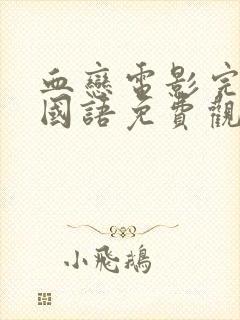 血戀電影完
國語免費觀
小飛鵝